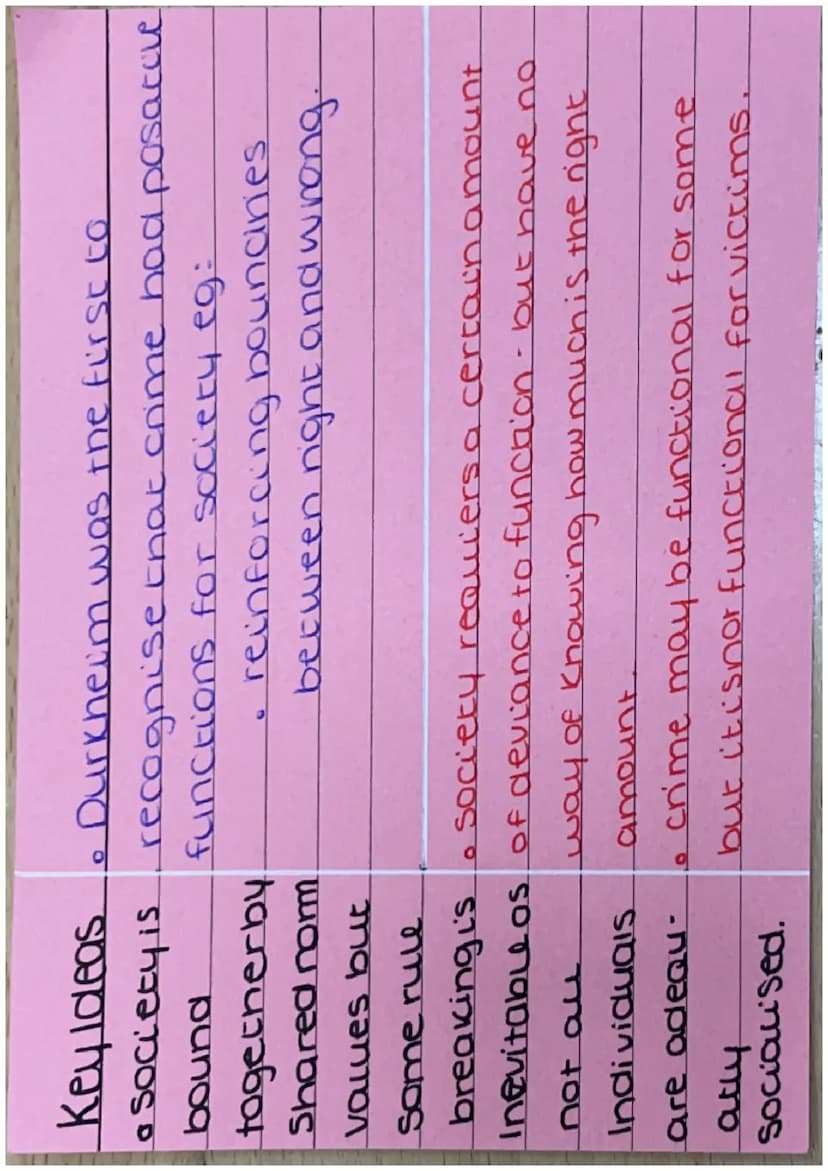 Key Ideas
• society is
bound
together by
Shared norm
values but
Some rule
breaking is
Inevitable as
not all
Individuals
are adequ-
atly
socialised.
• Durkheim was the first to
recognise that crime had posative
functions for society eg:
• reinforcing boundries
between right and wrong.
• society requiers a certain amount
of deviance to function - but have no
way of knowing how much is the right
amount.
• crime may be functional for some
but it isnot functional for victims.